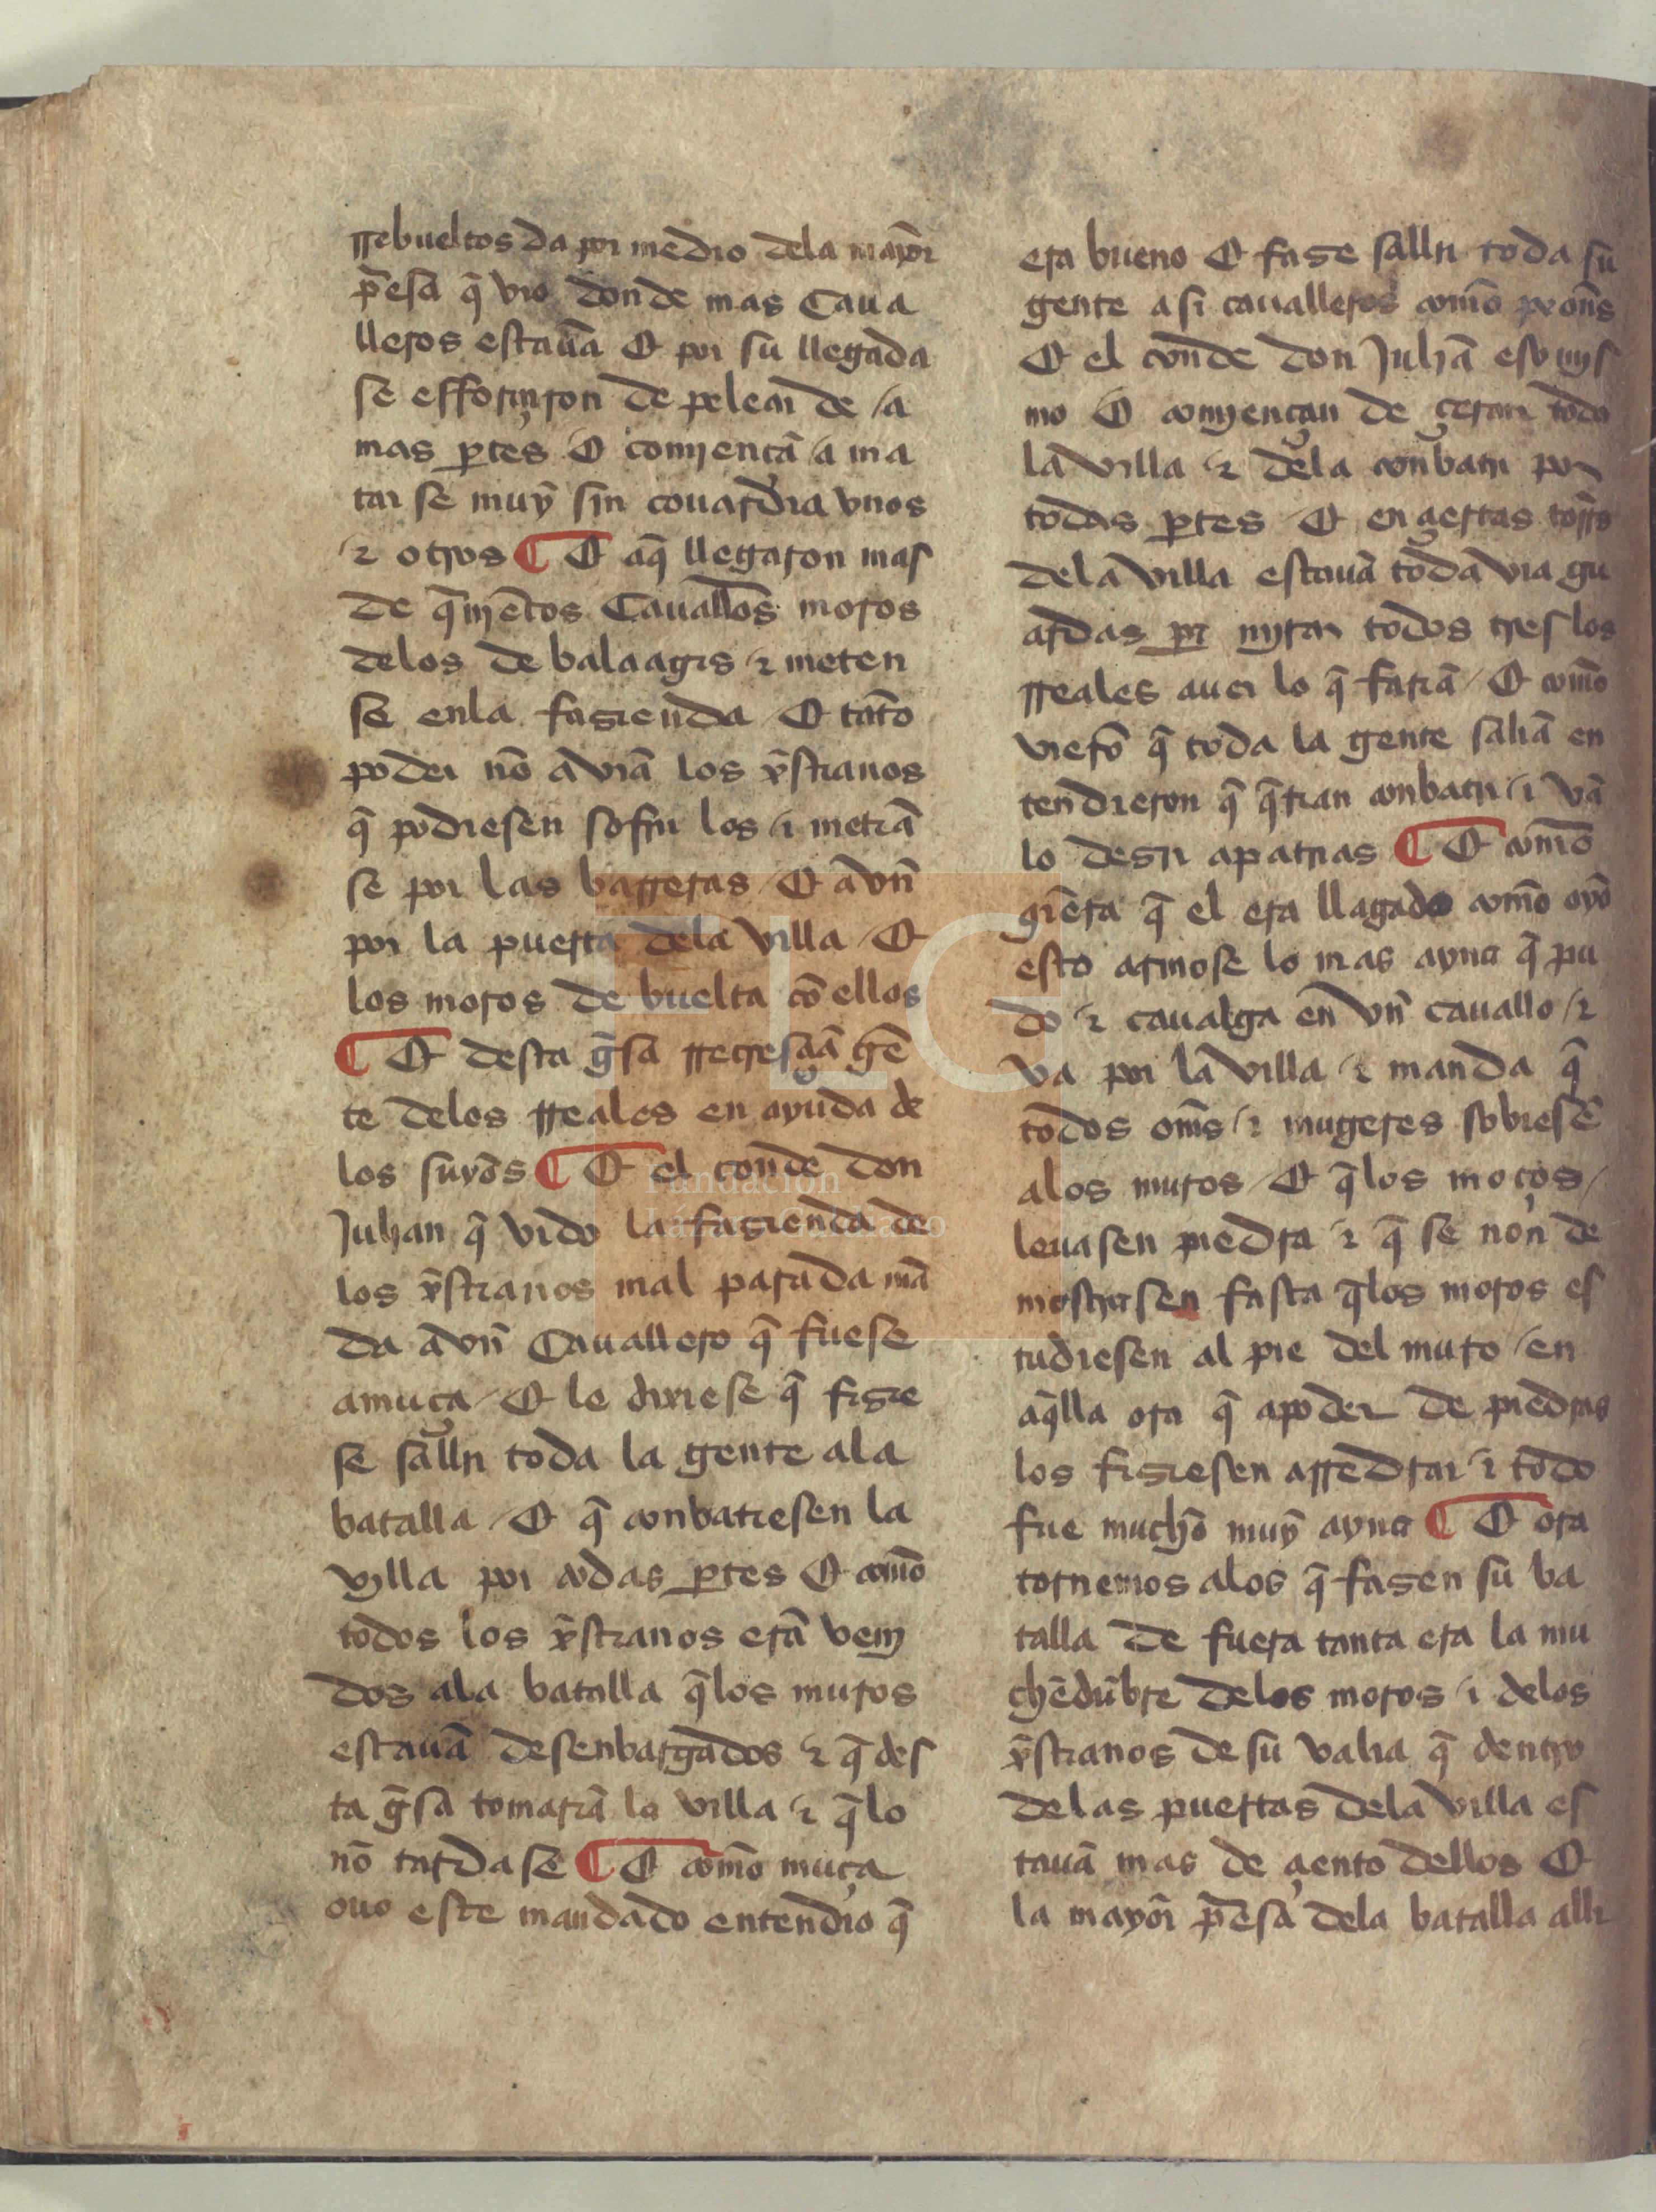 rrebueltos da por medio dela mayor̃
p̃esa q̃ vio donde mas Caua
lleros estauã E por su llegada
se efforçaron de pelear de a
mas ꝑtes E comiençã a ma
tar se muỹ sin couardia vnos
⁊ otros ¶ E aq̃ llegaron mas
de q̃njẽtos Cauall̃os moros
delos de balaagis ⁊ meten
se enla fazienda E tãto
poder nõ avian los xp̃stianos
q̃ podiesen sofrir los ⁊ metiã
se por las barreras E avñ
por la puerta dela villa E
los moros de buelta cõ ellos
¶ E desta g̃sa rrecresçiã gẽ
te delos rreales en ayuda de
los suyõs ¶ E el conde don
Julian q̃ vido la fazienda de
los xp̃stianos mal parada mã
da avñ Cauallero q̃ fuese
amuça E le dixiese q̃ fizie
se sallir toda la gente ala
batalla E q̃ conbatiesen la
villa por todas ꝑtes E comõ
todos los xp̃stianos erã venj
dos ala batalla q̃los muros
estauã desenbargados ⁊ q̃ des
ta g̃sa tomariã la villa ⁊ q̃lo
nõ tardase ¶ E comõ muça
ouo este mandado entendio q̃
era bueno E faze sallir toda su
gente asi caualleros comõ peoñs
E el conde don Juliã eso mjs
mo E comjençan de çercar toda
la villa ⁊ dela conbatir por
todas ꝑtes E en çiertas torr̃s
dela villa estauã toda via gu
ardas ꝑa mjrar todos tres los
rreales auer lo q̃ fariã E comõ
vierõ q̃ toda la gente saliã en
tendieron q̃ q̃rian conbatir ⁊ vã
lo dezir apatrias ¶ E comõ
q̃era q̃ el era llagado comõ oyõ
esto armose lo mas ayna q̃ pu
do ⁊ caualga en vñ cauallo ⁊
va por la villa ⁊ manda q̃
todos om̃s ⁊ mugeres sobiesẽ
alos muros E q̃los moços
leuasen piedra ⁊ q̃ se non de
mostrasen fasta q̃los moros es
tudiesen al pie del muro en
aq̃lla ora q̃ apoder de piedras
los fiziesen arredrar ⁊ todo
fue muchõ muỹ ayna ¶ E ora
tornemos alos q̃ fazen su ba
talla de fuera tanta era la mu
chẽdũbre delos moros ⁊ delos
xp̃stianos de su valia q̃ dentro
delas puertas dela villa es
tauã mas de çiento dellos E
la mayor̃ p̃esa dela batalla alli
Fundación
Lázaro Galdiano
FLG